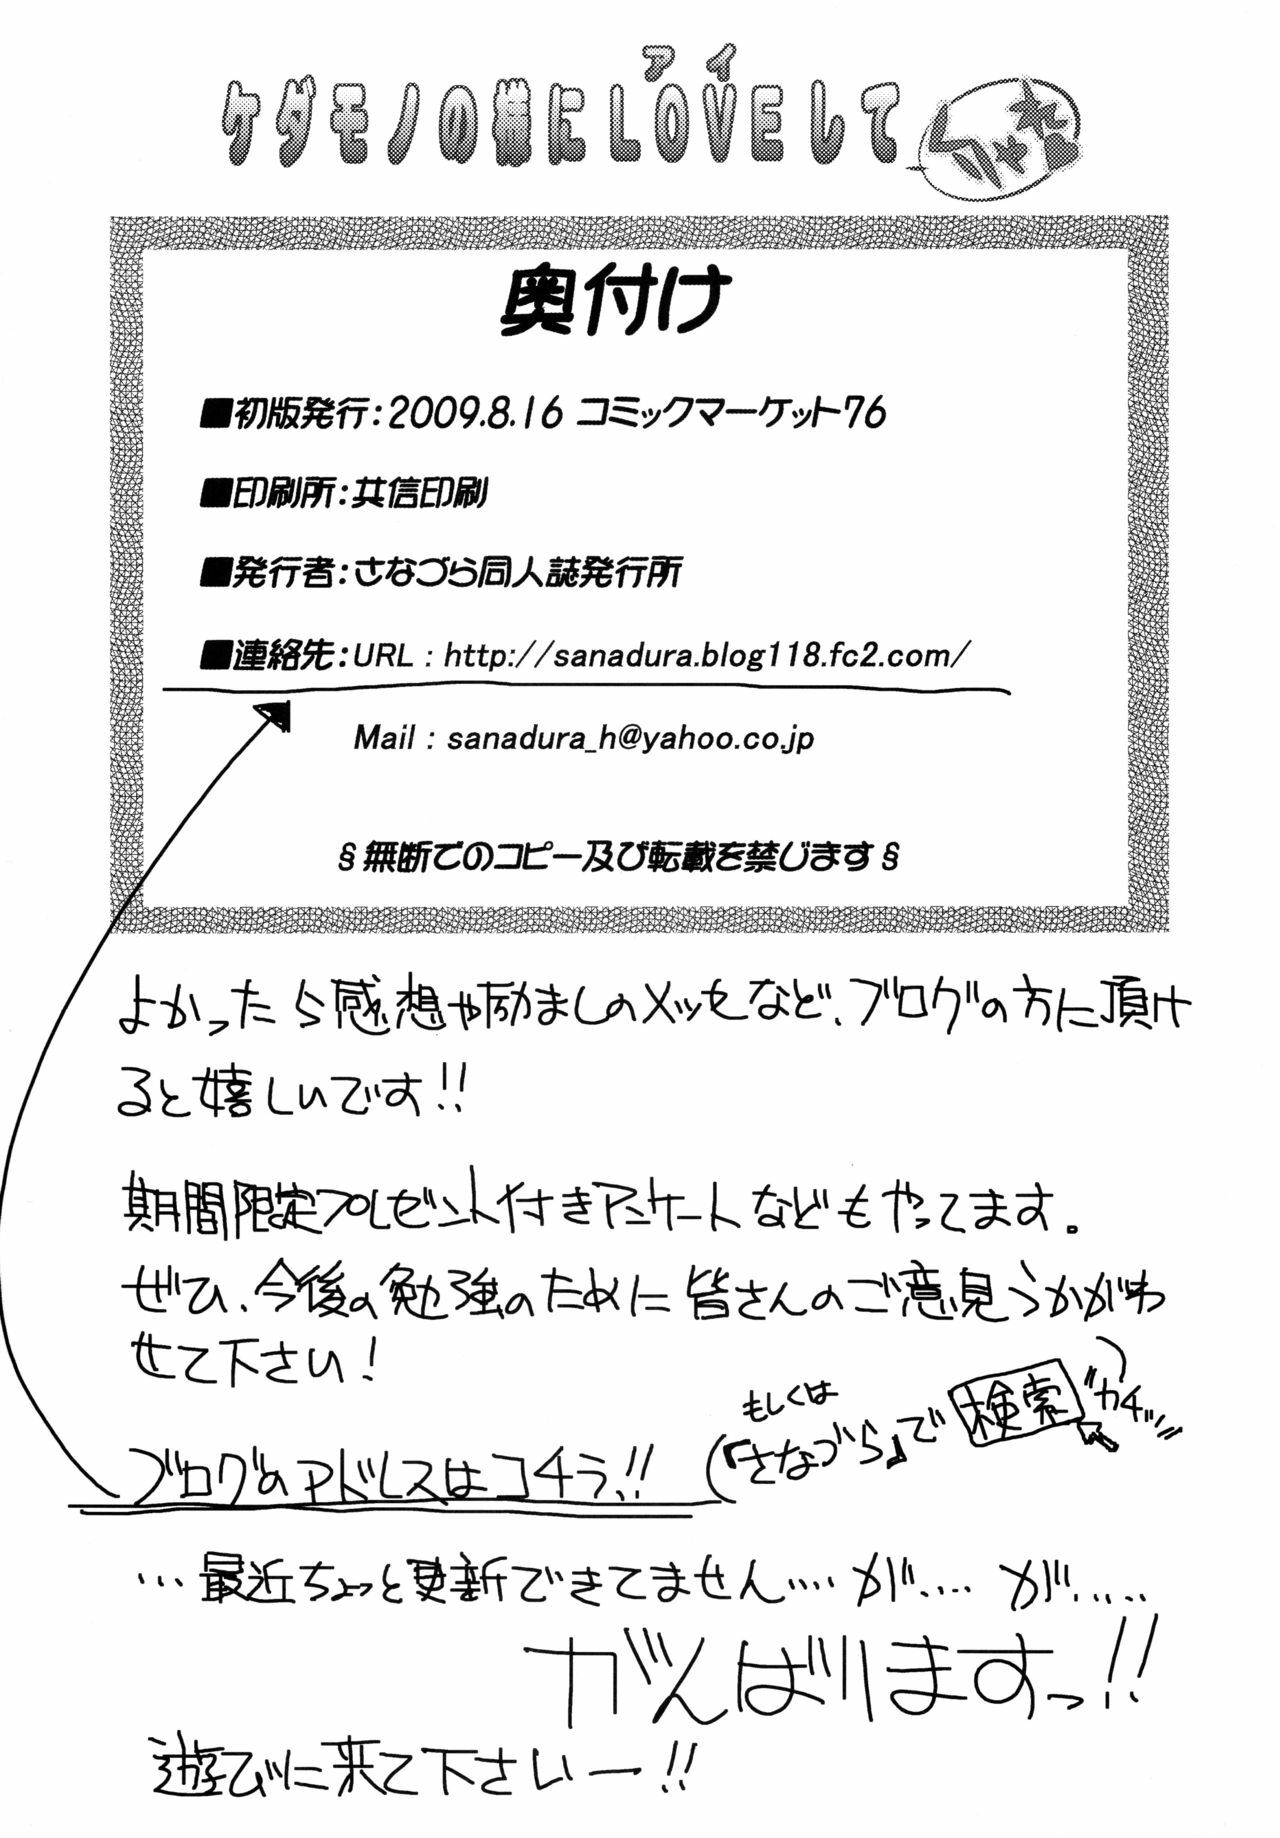 アイ
ケダモノの様にLOVEしてくりゃれ
奥付け
■初版発行:2009.8.16 コミックマーケット76
■印刷所:共信印刷
■発行者:さなづら同人誌発行所
■連絡先:URL : http://sanadura.blog118.fc2.com/
Mail : sanadura_h@yahoo.co.jp
§無断でのコピー及び転載を禁じます§
よかったら感想や励ましのメッセなど、ブログの方に頂け
ると嬉しいです!!
期間限定プレゼント付きアンケートなどもやってます。
ぜひ、今後の勉強のために皆さんのご意見うかがわ
せて下さい!
ブログのアドレスはコチラ!!
(もしくは
『さなづら』で検索 ガチッ)
…最近ちょっと更新できてません‥‥が‥‥が‥‥‥
がんばりますっ!!
遊びに来て下さいー!!